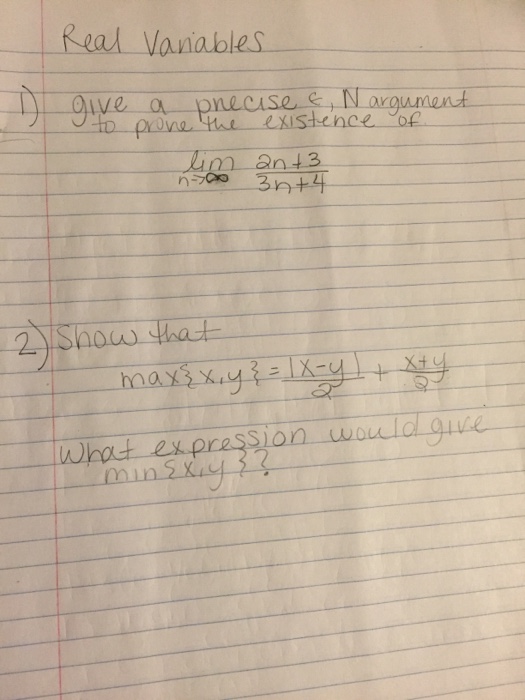 Real Variables
1) give a precise ε, N argument
to prove the existence of
lim n→∞ 2n+3 / 3n+4
2) Show that
max{x,y} = |x-y| / 2 + x+y / 2
What expression would give
min{x,y}?